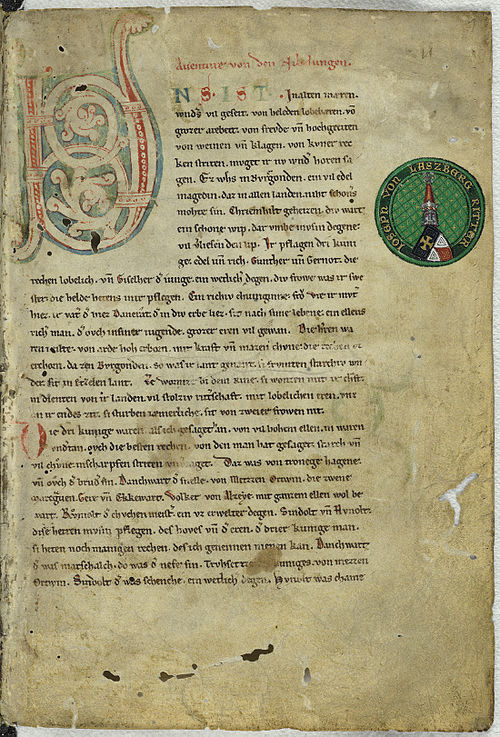 Auenture von den Nibelungen.
VNS. IST. Inalten mæren.
wnders vil geseit. von heleden lobebæren. vō
grozer arebeit. von freude vn̄ hochgeciten
von weinen vn̄ klagen. von kuner re
ken striten. muget ir nv wnder horen sa
gen. Ez whs in Byrgonden. ein vil edel
magedin. daz in allen landen. niht schoners
mohte sin. Chriemhilt geheizen. div wart
ein schone wip. dar vmbe mvsin degene
vil vliesen den lip. Ir pflagen dri kuni
ge. edel vn̄ rich. Gunther vn̄ Gernot. die
rechen lobelich. vn̄ Giselher d iunge. ein wetlich degen. div frowe was ir swe
ster. die helde hetens inir pflegen. Ein richiv chuniginne. frō Vte ir mvt
hiez. ir vat d hiez Dancrat. d in div erbe liez. sit nach sime lebene. ein ellens
rich man. d ovch insiner iugende. grozer eren vil gewan. Die h'ren wa
ren milte. von arde hoh erborn. mit kraft vn̄ mazen chvne. die rechen vz
erchorn. da zen Byrgonden. so was ir lant genant. si frvmten starchiv wn
der. sit in Etzelen lant. Ze Wormze bi dem Rine. si wonten mit ir chraft.
in dienten von ir landen. vil stolziv ritt'schaft. mit lobelichen eren. vnz
an ir endes zit. si sturben iæmerliche. sit von zweier frowen nit.
Die dri kunige waren. als ich gesaget han. von vil hohen ellen. in waren
vndtan. ovch die besten rechen. von den man hat gesaget. starch vn̄
vil chvne. inscharpfen striten vnverzaget. Daz was von tronege hagene.
vn̄ ovch d brud sin. Danchwart d snelle. von Metzen Ortwin. die zwene
marcgven. Gere vn̄ Ekkewart. Volker von Alzeye. mit ganzem ellen wol be
wart. Rvmolt d chvchenmeist'. ein vz erwelter degen. Sindolt vn̄ Hvnolt.
dise herren mvsin pflegen. des hoves vn̄ d eren. d drier kunige man.
si heten noch manigen rechen. des ich genennen nienen kan. Danchwart
d was marschalch. do was d nefe sin. Truhsetze des kuniges. von metzen
Ortwin. Sindolt d was schenche. ein wetlich degen. Hvnolt was chame
JOSEPH VON LASZBERG RITTER